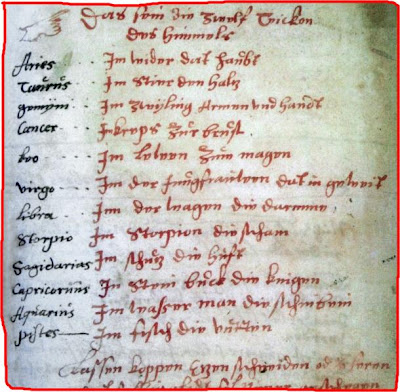 Das sein die Zwelf Zeicken
des himmels
Aries Im wider dat haubt
Taurus Im Stire den halz
gemini Im Zwyling Armen und handt
Cancer Im kreps Zur brust
Leo Im Lewen Zum magen
Virgo Im der Jungfrauwen dat in geweit
Libra Im der wagen die darame
Storpio Im Storpion die scham
Sagidarias Im schutz die huft
Capricornus In Stein buck die knigen
Aquarius Im wasser man die schinbein
pistes Im fisch die
lassen koppen Etzen schneiden